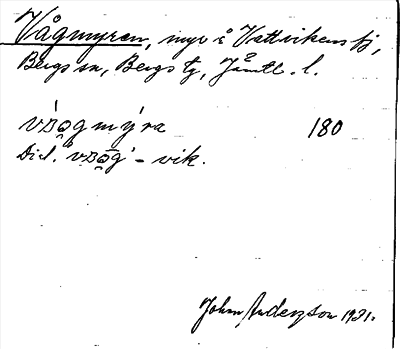 Vågmyren, myr å Vattvikens bj,
Bergs sn, Bergs tg, Jämtl. l.
180
Dial. - vik.
John Anderzson 1931.